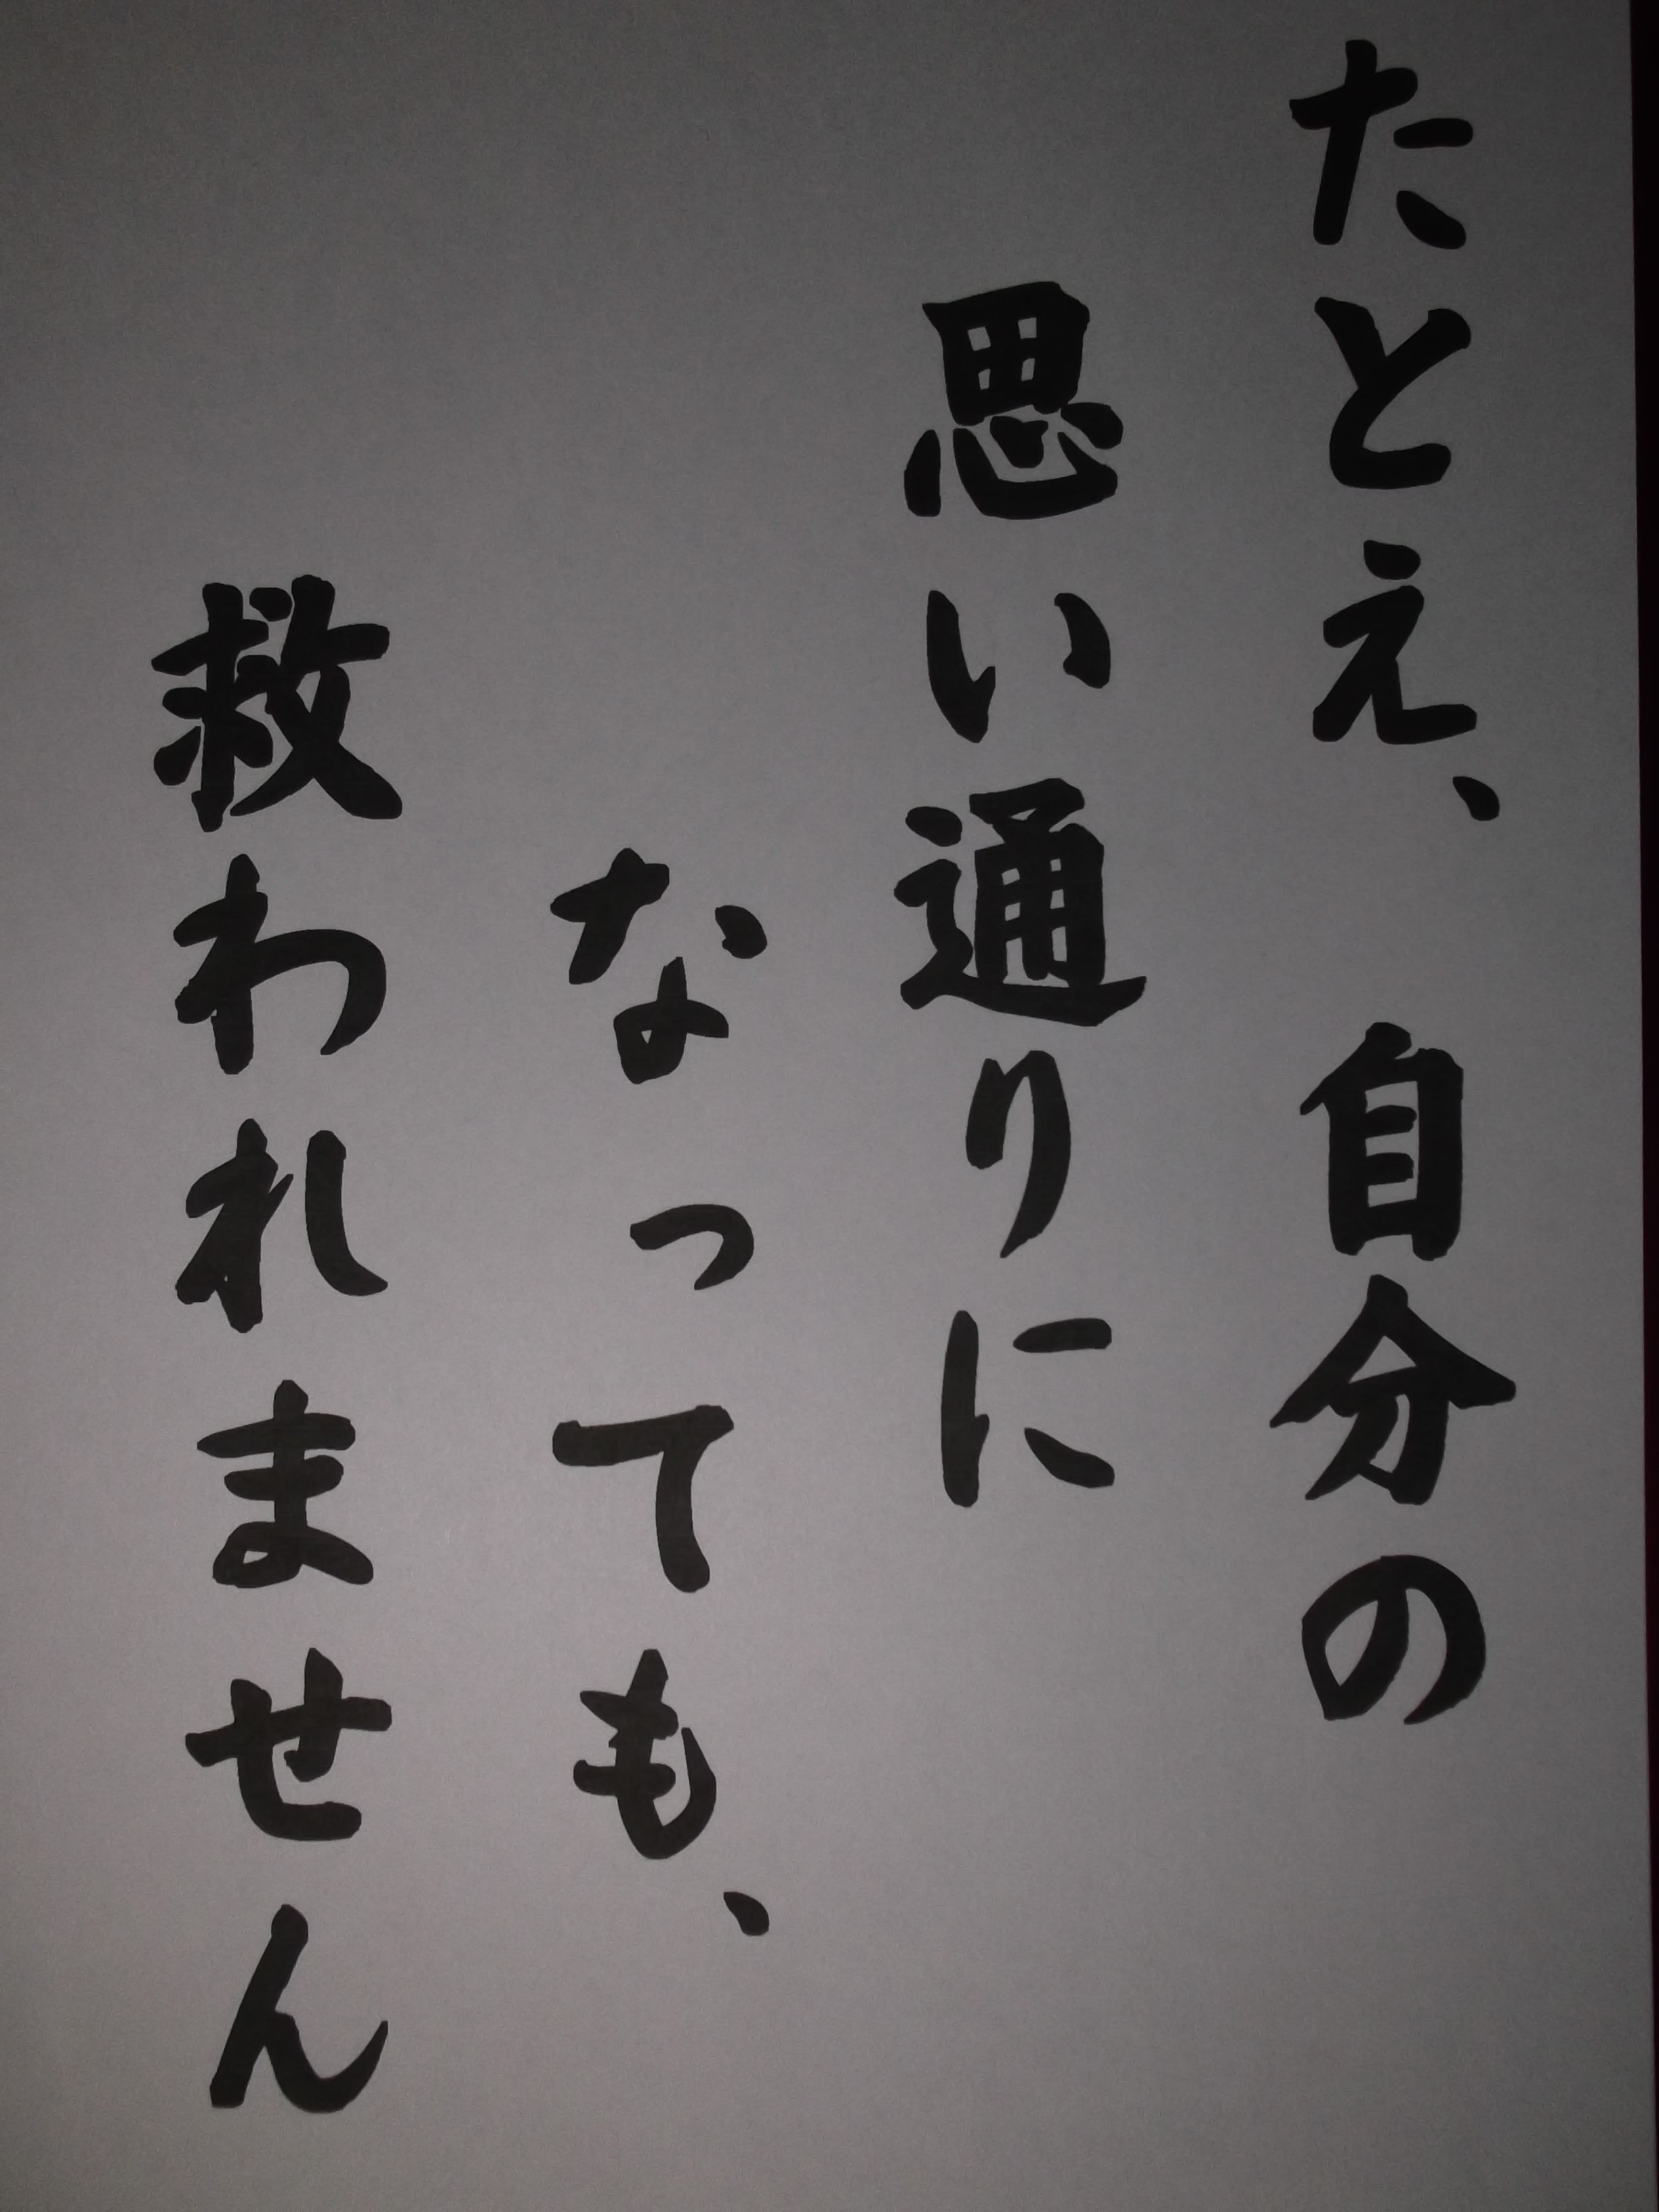 たとえ、 自分の
思い通りに
なっても、
救われません